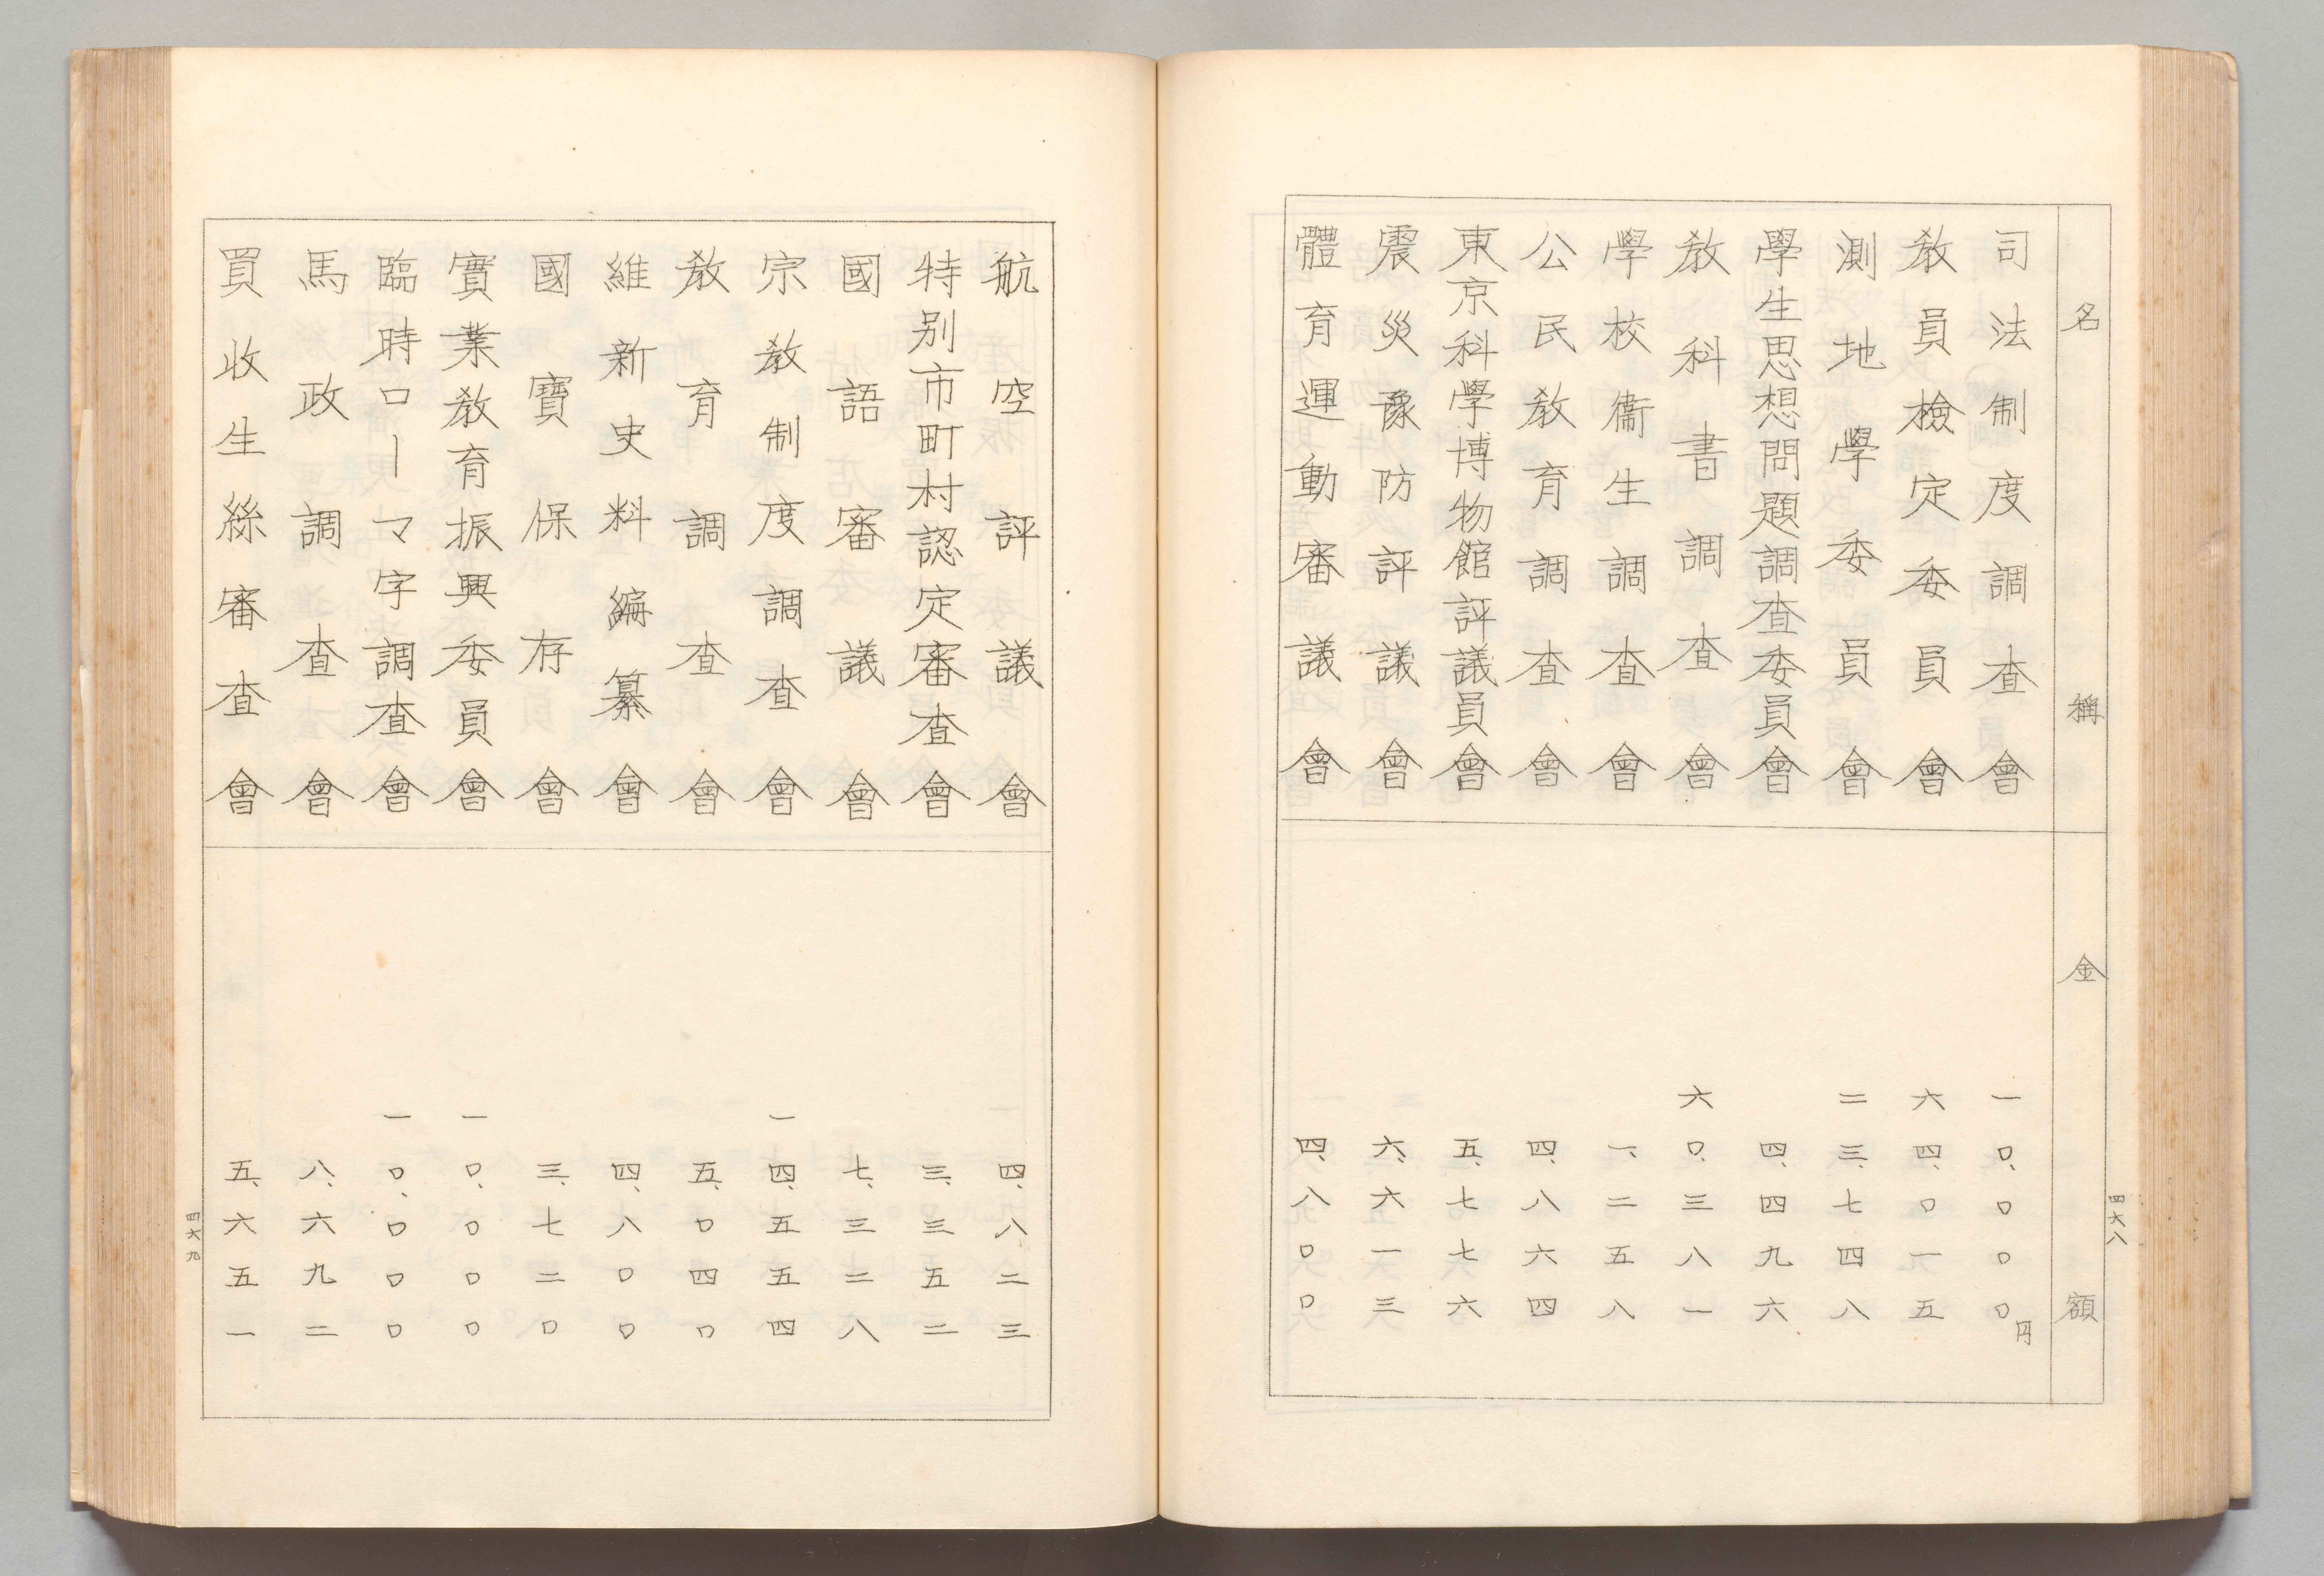 名稱 金額
司法制度調査會 一〇、〇〇〇円
敎員檢定委員會 六四、〇一五
測地學委員會 二三、七四八
學生思想問題調査委員會 四、四九六
敎科書調査會 六〇、三八一
學校衞生調査會 一、二五八
公民敎育調査會 四、八六四
東京科學博物館評議員會 五、七七六
震災豫防評議會 六、六一三
體育運動審議會 四、八〇〇
四六八
航空評議會 四、八二三
特別市町村認定審査會 三、三五二
國語審議會 七、三二八
宗敎制度調査會 一四、五五四
敎育調査會 五、〇四〇
維新史料編纂會 四、八〇〇
國寶保存會 三、七二〇
實業敎育振興委員會 一〇、〇〇〇
臨時ローマ字調査會 一〇、〇〇〇
馬政調査會 八、六九二
買收生絲審査會 五、六五一
四六九